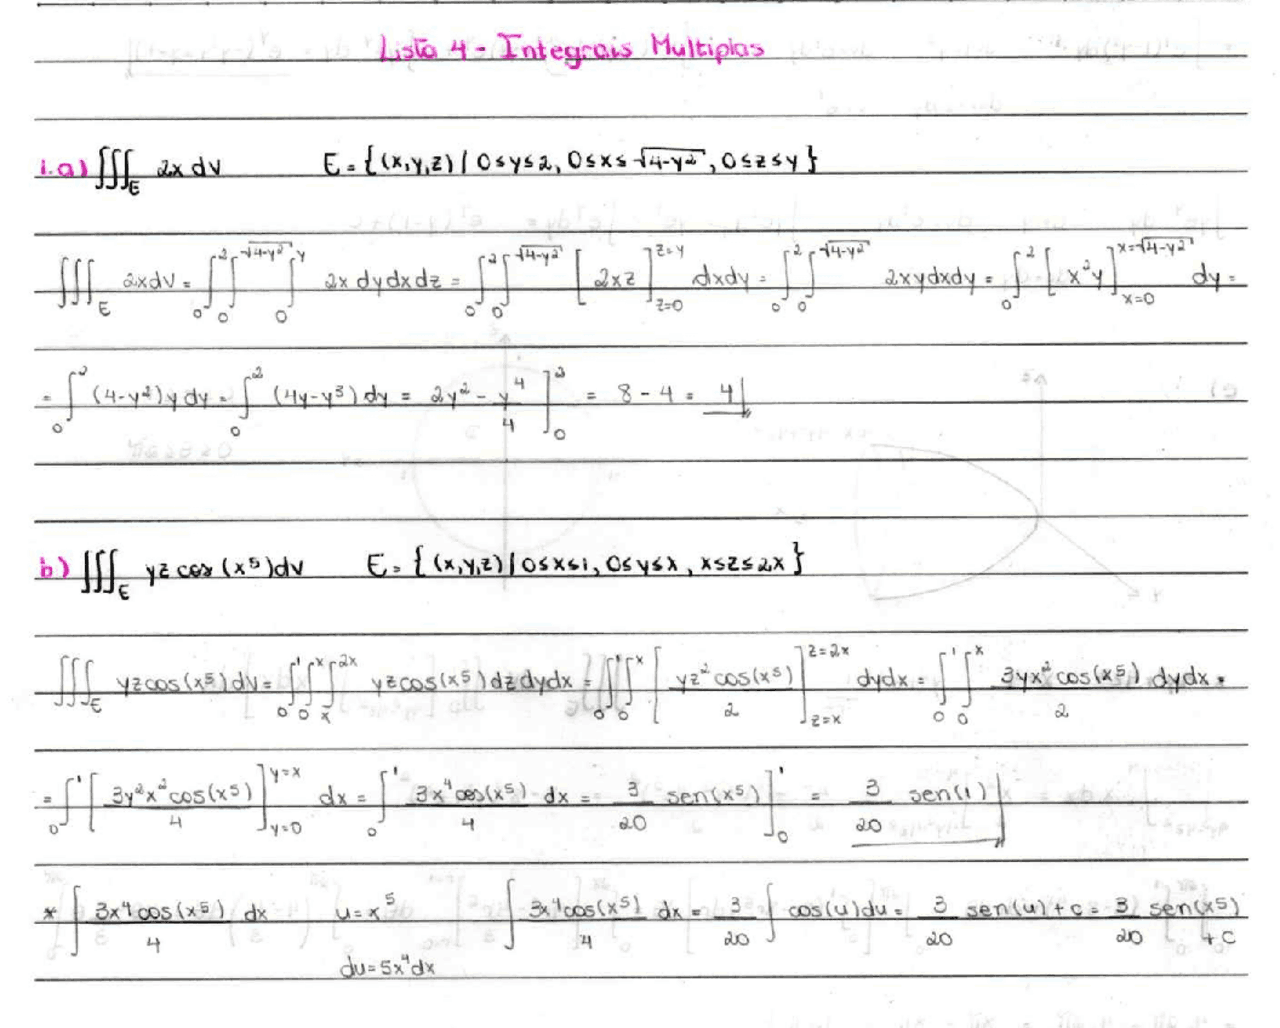 Lista 4 - Integrais Multiplas
1.a) ∭_E 2x dV E = {(x,y,z) | 0≤y≤2, 0≤x≤√(4-y²), 0≤z≤y}
∭_E 2xdV = ∫_0^2 ∫_0^√(4-y²) ∫_0^y 2x dydxdz = ∫_0^2 ∫_0^√(4-y²) [2xz]_{z=0}^{z=y} dxdy = ∫_0^2 ∫_0^√(4-y²) 2xydxdy = ∫_0^2 [x²y]_{x=0}^{x=√(4-y²)} dy =
= ∫_0^2 (4-y²)y dy = ∫_0^2 (4y-y³) dy = 2y² - y⁴/4 ]_0^2 = 8 - 4 = 4
b) ∭_E yz cos(x⁵)dV E = {(x,y,z) | 0≤x≤1, 0≤y≤x, x≤z≤2x}
∭_E yzcos(x⁵)dV = ∫_0^1 ∫_0^x ∫_x^2x yzcos(x⁵)dzdydx = ∫_0^1 ∫_0^x [yz²cos(x⁵)/2]_{z=x}^{z=2x} dydx = ∫_0^1 ∫_0^x 3yx²cos(x⁵)/2 dydx =
= ∫_0^1 [3y²x²cos(x⁵)/4]_{y=0}^{y=x} dx = ∫_0^1 3x⁴cos(x⁵)/4 dx = 3/20 sen(x⁵) ]_0^1 = 3/20 sen(1)
* ∫ 3x⁴cos(x⁵)/4 dx u = x⁵ ∫ 3x⁴cos(x⁵)/4 dx = 3/20 ∫ cos(u)du = 3/20 sen(u) + c = 3/20 sen(x⁵) + C
du = 5x⁴dx